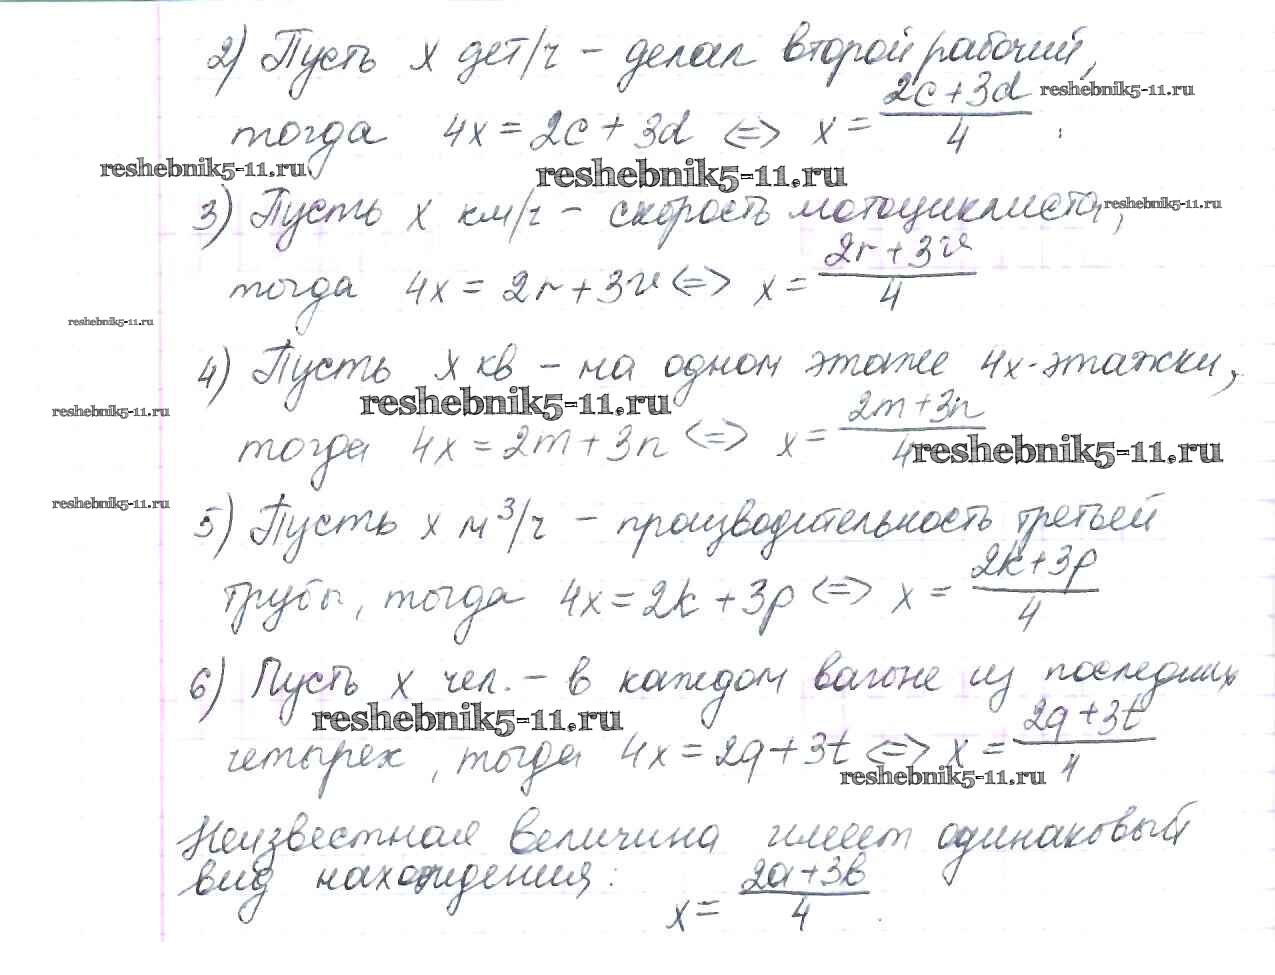 2) Пусть x дет/ч – делал второй рабочий,
reshebnik5-11.ru
тогда 4x = 2c + 3d <=> x = (2c+3d)/4 ;
reshebnik5-11.ru reshebnik5-11.ru
3) Пусть x км/ч – скорость мотоциклиста,
reshebnik5-11.ru
тогда 4x = 2r + 3v <=> x = (2r+3v)/4
reshebnik5-11.ru
4) Пусть x кв – на одном этаже 4х-этажки,
reshebnik5-11.ru reshebnik5-11.ru
тогда 4x = 2m + 3n <=> x = (2m+3n)/4
reshebnik5-11.ru
reshebnik5-11.ru
5) Пусть x м³/ч – производительность третьей
трубы, тогда 4x = 2k + 3p <=> x = (2k+3p)/4
6) Пусть x чел. – в каждом вагоне из последних
reshebnik5-11.ru
четырех, тогда 4x = 2q + 3t <=> x = (2q+3t)/4
reshebnik5-11.ru
Неизвестная величина имеет одинаковый
вид нахождения:
x = (2a+3b)/4